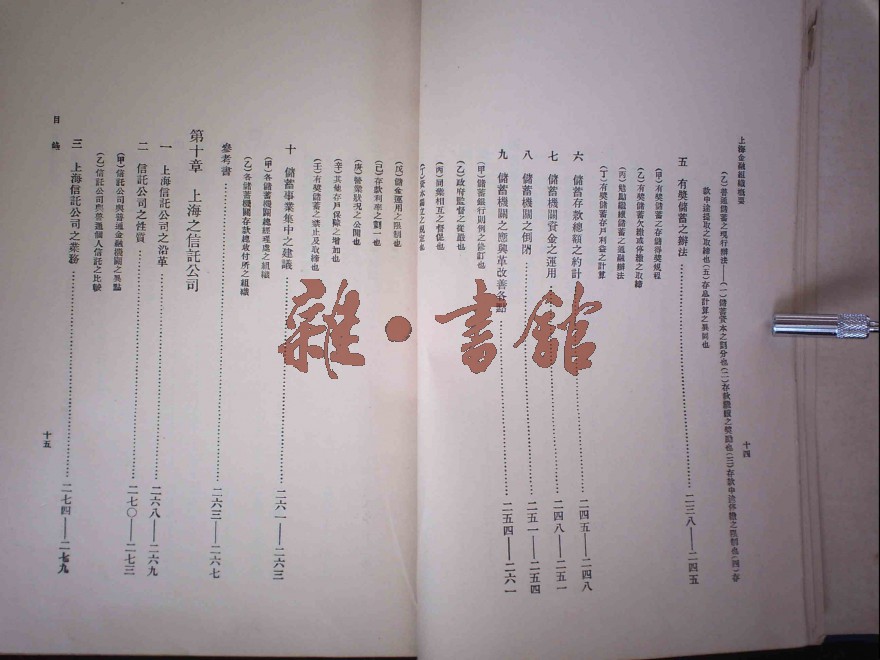 上海金融組織概要
(乙)普通儲蓄之現行辦法——(一)儲蓄資本之劃分也(二)存款種類之獎勵也(三)存款中途停繳之限制也(四)存
款中途提取之取締也(五)存息計算之異同也
五 有獎儲蓄之辦法……二三八——二四五
(甲)有獎儲蓄之存儲得獎規程
(乙)有獎儲蓄欠繳或停繳之取締
(丙)勉勵繼續儲蓄之通融辦法
(丁)有獎儲蓄存戶利益之計算
六 儲蓄存款總額之約計……二四五——二四八
七 儲蓄機關資金之運用……二四八——二五一
八 儲蓄機關之倒閉……二五一——二五四
九 儲蓄機關之應興革改善各點……二五四——二六一
(甲)儲蓄銀行則例之修訂也
(乙)政府監督之從嚴也
(丙)同業相互之督促也
(丁)資本獨立之規定也
十四
(戊)儲金運用之限制也
(己)存款利率之劃一也
(庚)營業狀況之公開也
(辛)其他存戶保障之增加也
(壬)有獎儲蓄之禁止及取締也
十 儲蓄事業集中之建議……二六一——二六三
(甲)各儲蓄機關總經理處之組織
(乙)各儲蓄機關存款總收付所之組織
參考書……二六三——二六七
第十章 上海之信託公司
一 上海信託公司之沿革……二六八——二六九
二 信託公司之性質……二七〇——二七三
(甲)信託公司與普通金融機關之異點
(乙)信託公司與普通個人信託之比較
三 上海信託公司之業務……二七四——二七九
目錄
十五
雜·書館